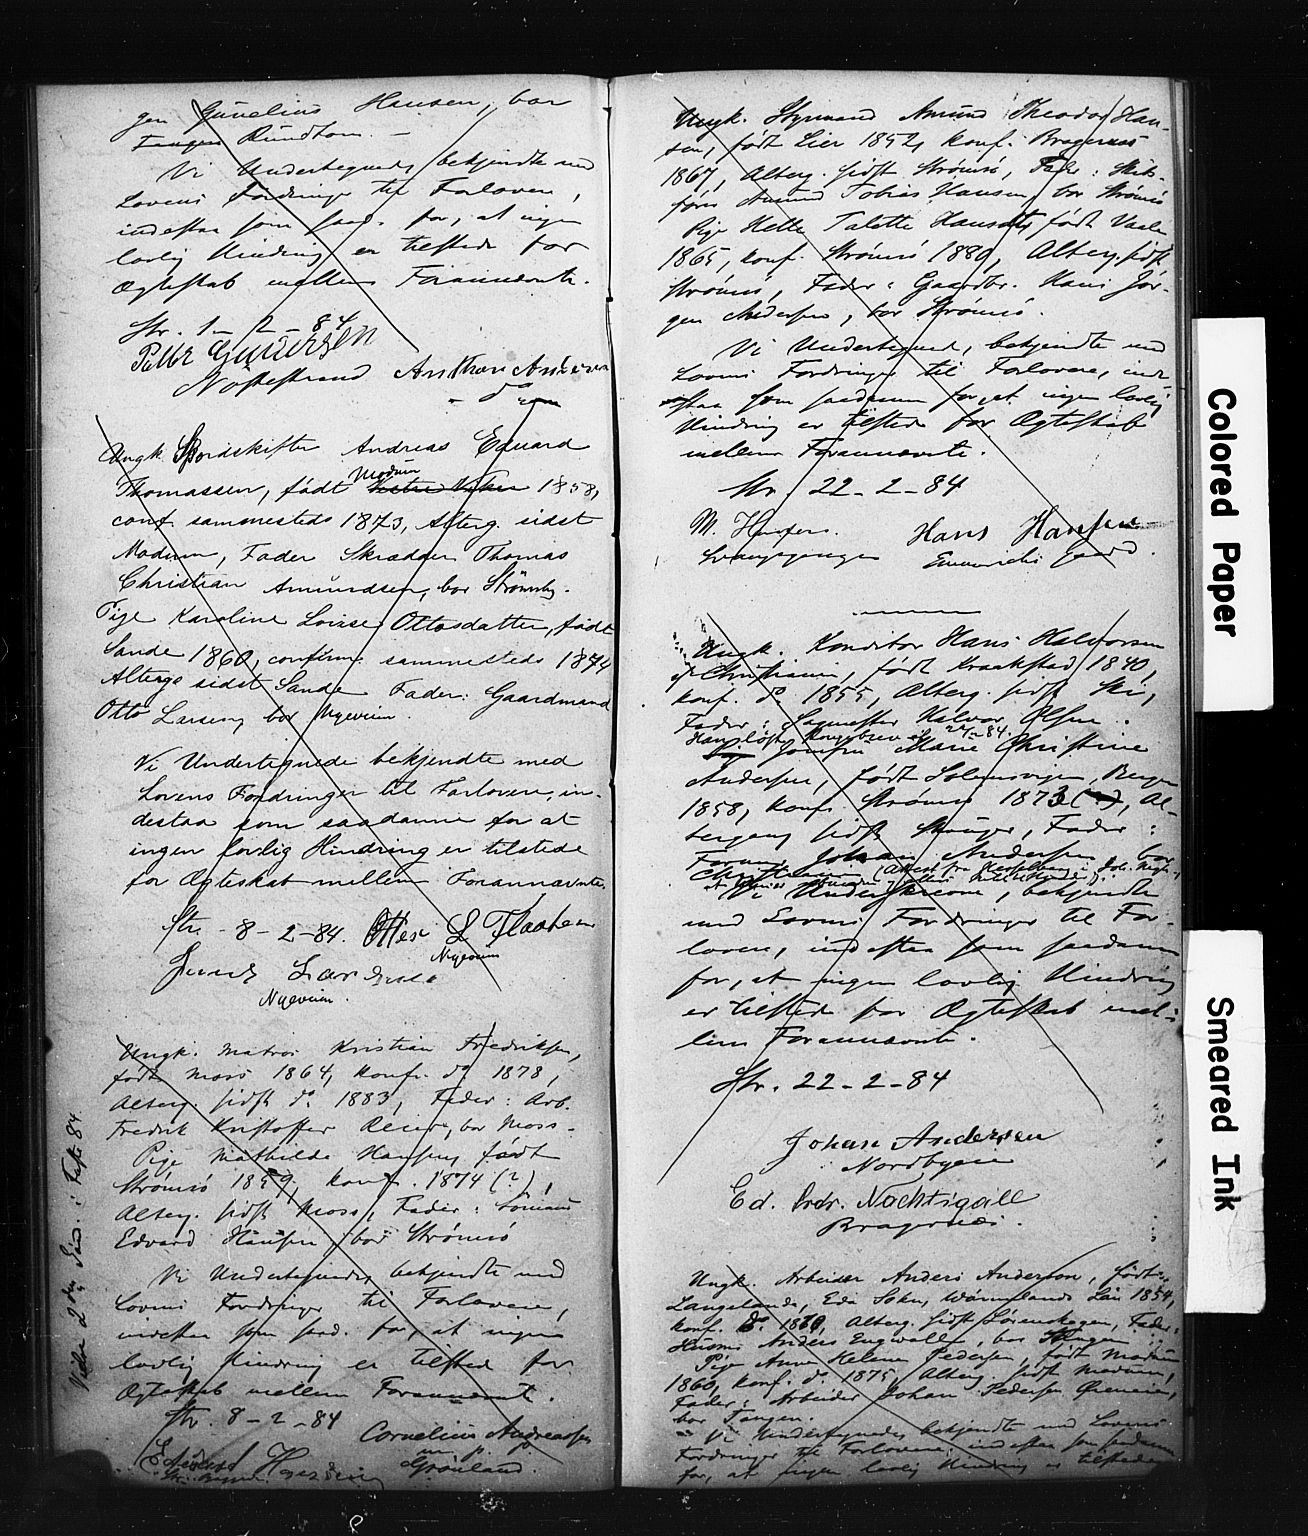 gen Gunelius Hansen, bor
Tangen Rundtom. —
Vi Undertegnede, bekjendte med
Lovens Fordringer til Forlovere,
indestaa som saad. for, at ingen
lovlig Hindring er tilstede for
Ægteskab mellem Forannævnte.
Str. 1 - 2 - 84
Petter Gundersen
Nøstestrand Anthon Andersen
- do
Ungk. Bordskifter Andreas Eduard
Modum
Thomassen, født Vestre Viker 1858,
conf sammesteds 1873, Alterg. sidst
Modum, Fader Skrædder Thomas
Christian Amundsen, bor Strømsø.
Pige Karoline Lovise Ottosdatter, født
Sande 1860, confirm. sammesteds 1874
Alterg. sidst Sande Fader: Gaardmand
Otto Larsen, bor Nyeveien.
Vi Undertegnede bekjendte med
Lovens Fordringer til Forlovere, in-
destaa som saadanne for at
ingen lovlig Hindring er tilstede
for Ægteskab mellem Forannævnte.
Str. - 8 - 2 - 84. Otto L
Nyeveien
Nyeveien.
Ungk. Matros Kristian Fredriksen,
født Moss 1864, konf. do 1878,
Alterg. sidst do 1883, Fader: Arb.
Fredrik Kristoffer, bor Moss.
Pige Mathilde Hansen, født
Strømsø 1859, konf. 1874 (?),
Alterg. sidst Moss, Fader: Sømand
Edvard Hansen, bor Strømsø
Vi Undertegnede, bekjendte med
Lovens Fordringer til Forlovere,
indestaa som saad. for, at ingen
lovlig Hindring er tilsted for
Ægteskab mellem Forannævnte.
Str. 8 - 2 - 84
Cornelius Andreassen
m. p. P.
Grønland.
Ungk. Styrmand Amund Theodor Han-
sen, født Lier 1852, konf. Bragernæs
1867, Alterg. sidst Strømsø, Fader: Skib-
fører Amund Tobias Hansen, bor Strømsø
Pige Helle Talette Hansen, født Vaale
1865, konf. Strømsø 1880, Alterg. sidst
Strømsø, Fader: Gaardbr. Hans Jør-
gen Andersen, bor Strømsø.
Vi Undertegnede, bekjendte med
Lovens Fordringer til Forlovere, inde-
staa som saadanne for, at ingen lovlig
Hindring er tilstede for Ægteskab
mellem Forannævnte.
Str. 22 - 2 - 84
M. Hansen. Hans Hansen
Ungk. Konditor Hans Halvorsen
af Christiania, født Kraakstad 1840,
konf. do 1855, Alterg. sidst Ski,
Fader: Halvor Olsen.
Jomfru Marie Christine
Andersen, født Solumsvigen, Bergen
1858, konf. Strømsø 1873 (?), Al-
tergang sidst, Fader:
Johan Andersen, bor
Christiania
Vi Underskrevne, bekjendte
med Lovens Fordringer til For-
lovere, indestaa som saadanne
for, at ingen lovlig Hindring
er tilstede for Ægteskab mel-
lem Forannævnte.
Str. 22 - 2 - 84
Johan Andersen
Nordbyeie
Ed. Fredr. Nachtigall
Bragernæs.
Ungk. Arbeider Anders Anderson, født
Langelanda, Eda Sokn, Wärmlands Län 1854,
konf. do 1870, Alterg. sidst Lørenskogen, Fader:
Husm. Anders Engwall, bor
Pige Anne Helene Pedersen, født Modum
1860, konf. do 1875, Alterg. sidst Modum,
Fader: Arbeider Johan Pedersen,
bor Tangen.
Vi Undertegnede, bekjendte med Lovens
Fordringer til Forlovere, indestaa som saadanne
for, at ingen lovlig Hindring er tilstede
Colored Paper
Smeared Ink